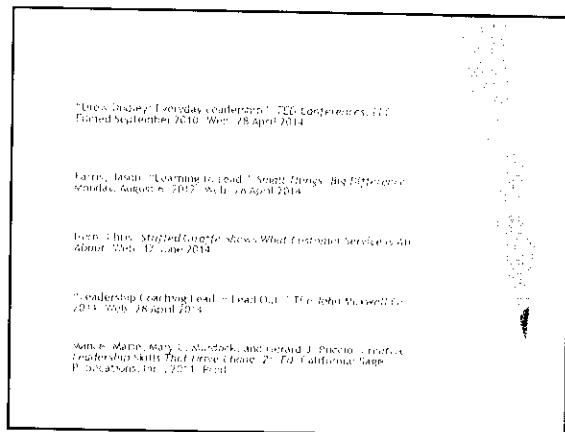 "Drew Dudley: Everyday Leadership." TED Conferences, LLC.
Filmed September 2010. Web. 28 April 2014.
Farris, Jason. "Learning to Lead." Small Things, Big Difference.
Monday, August 6, 2012. Web. 28 April 2014.
Chris. Stuffed Giraffe Shows What Customer Service is All
About. Web. 12 June 2014.
"Leadership Coaching Lead Out." The John Maxwell Co.
Web. 28 April 2014.
Vance, Marie, Mary C. Murdock, and Gerard J. Puccio. Creative
Leadership Skills That Drive Change. Ed. California: Sage
Publications, Inc., 2011. Print.